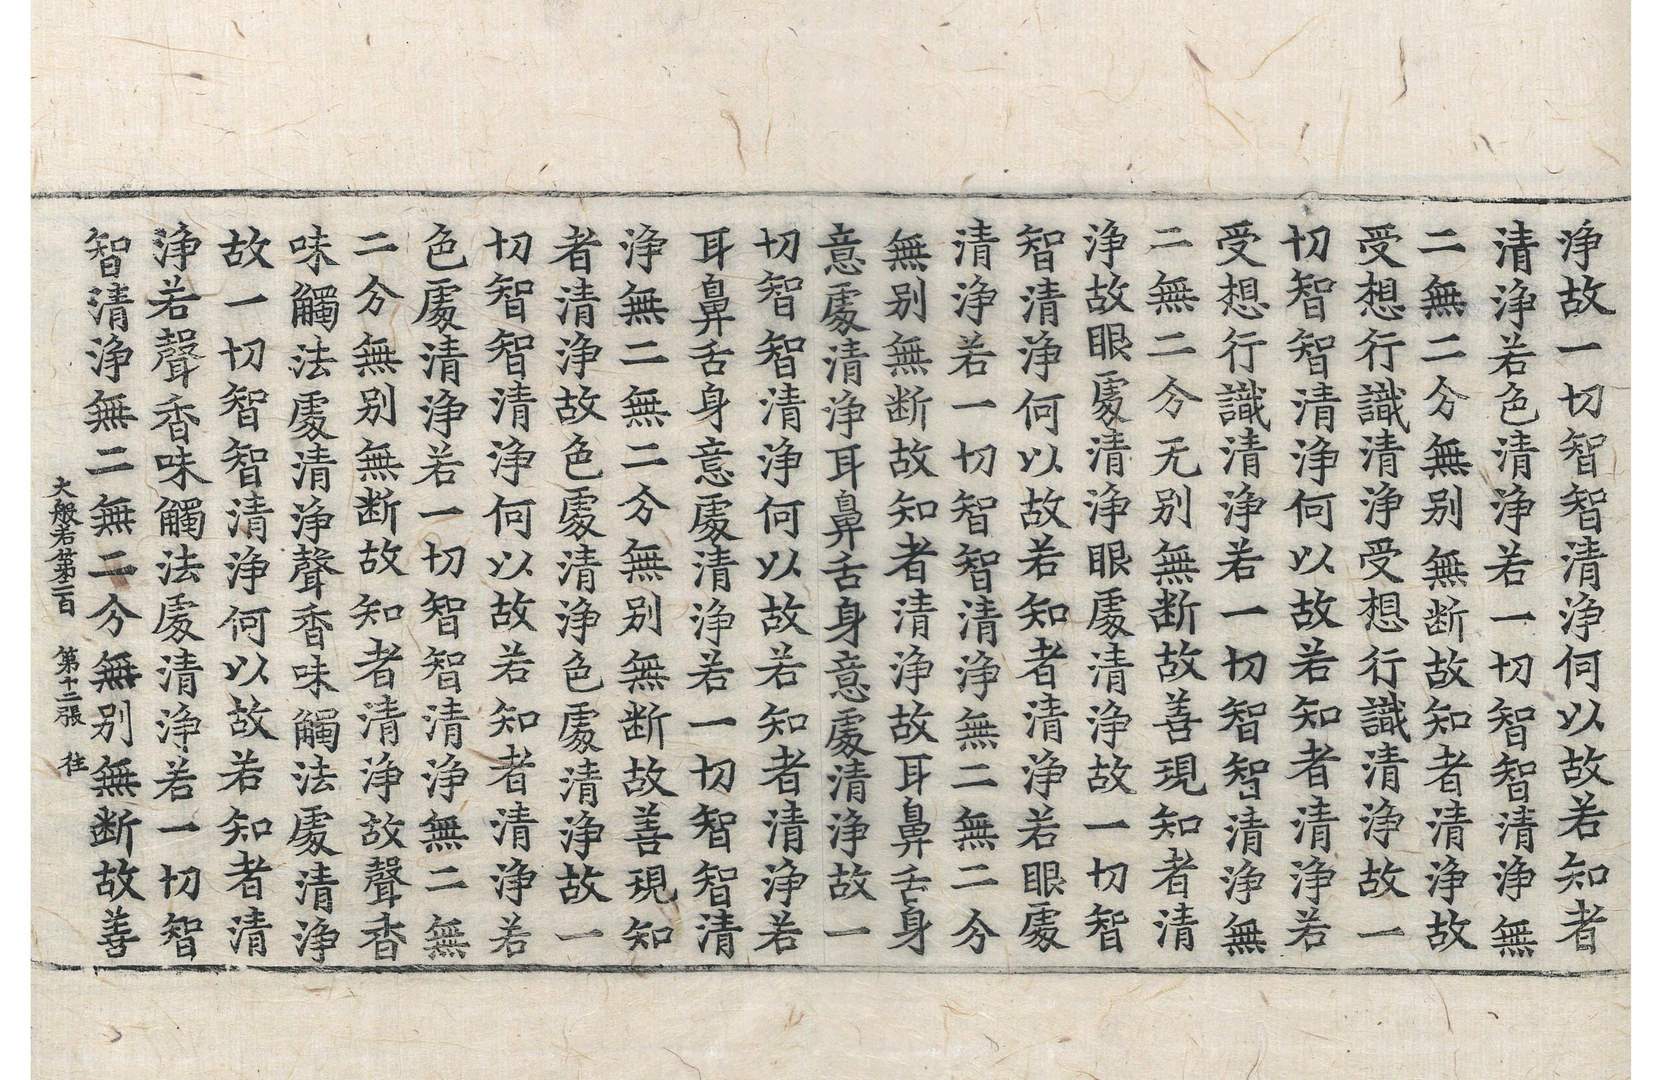 浄故一切智智清浄何以故若知者
清浄若色清浄若一切智智清浄無
二無二分無别無断故知者清浄故
受想行識清浄受想行識清浄故一
切智智清浄何以故若知者清浄若
受想行識清浄若一切智智清浄無
二無二分无别無断故善現知者清
浄故眼處清浄眼處清浄故一切智
智清浄何以故若知者清浄若眼處
清浄若一切智智清浄無二無二分
無别無断故知者清浄故耳鼻舌身
意處清浄耳鼻舌身意處清浄故一
切智智清浄何以故若知者清浄若
耳鼻舌身意處清浄若一切智智清
浄無二無二分無别無断故善現知
者清浄故色處清浄色處清浄故一
切智智清浄何以故若知者清浄若
色處清浄若一切智智清浄無二無
二分無别無断故知者清浄故聲香
味觸法處清浄聲香味觸法處清浄
故一切智智清浄何以故若知者清
浄若聲香味觸法處清浄若一切智
智清浄無二無二分無别無断故善
大般若第二百 第十二張 往